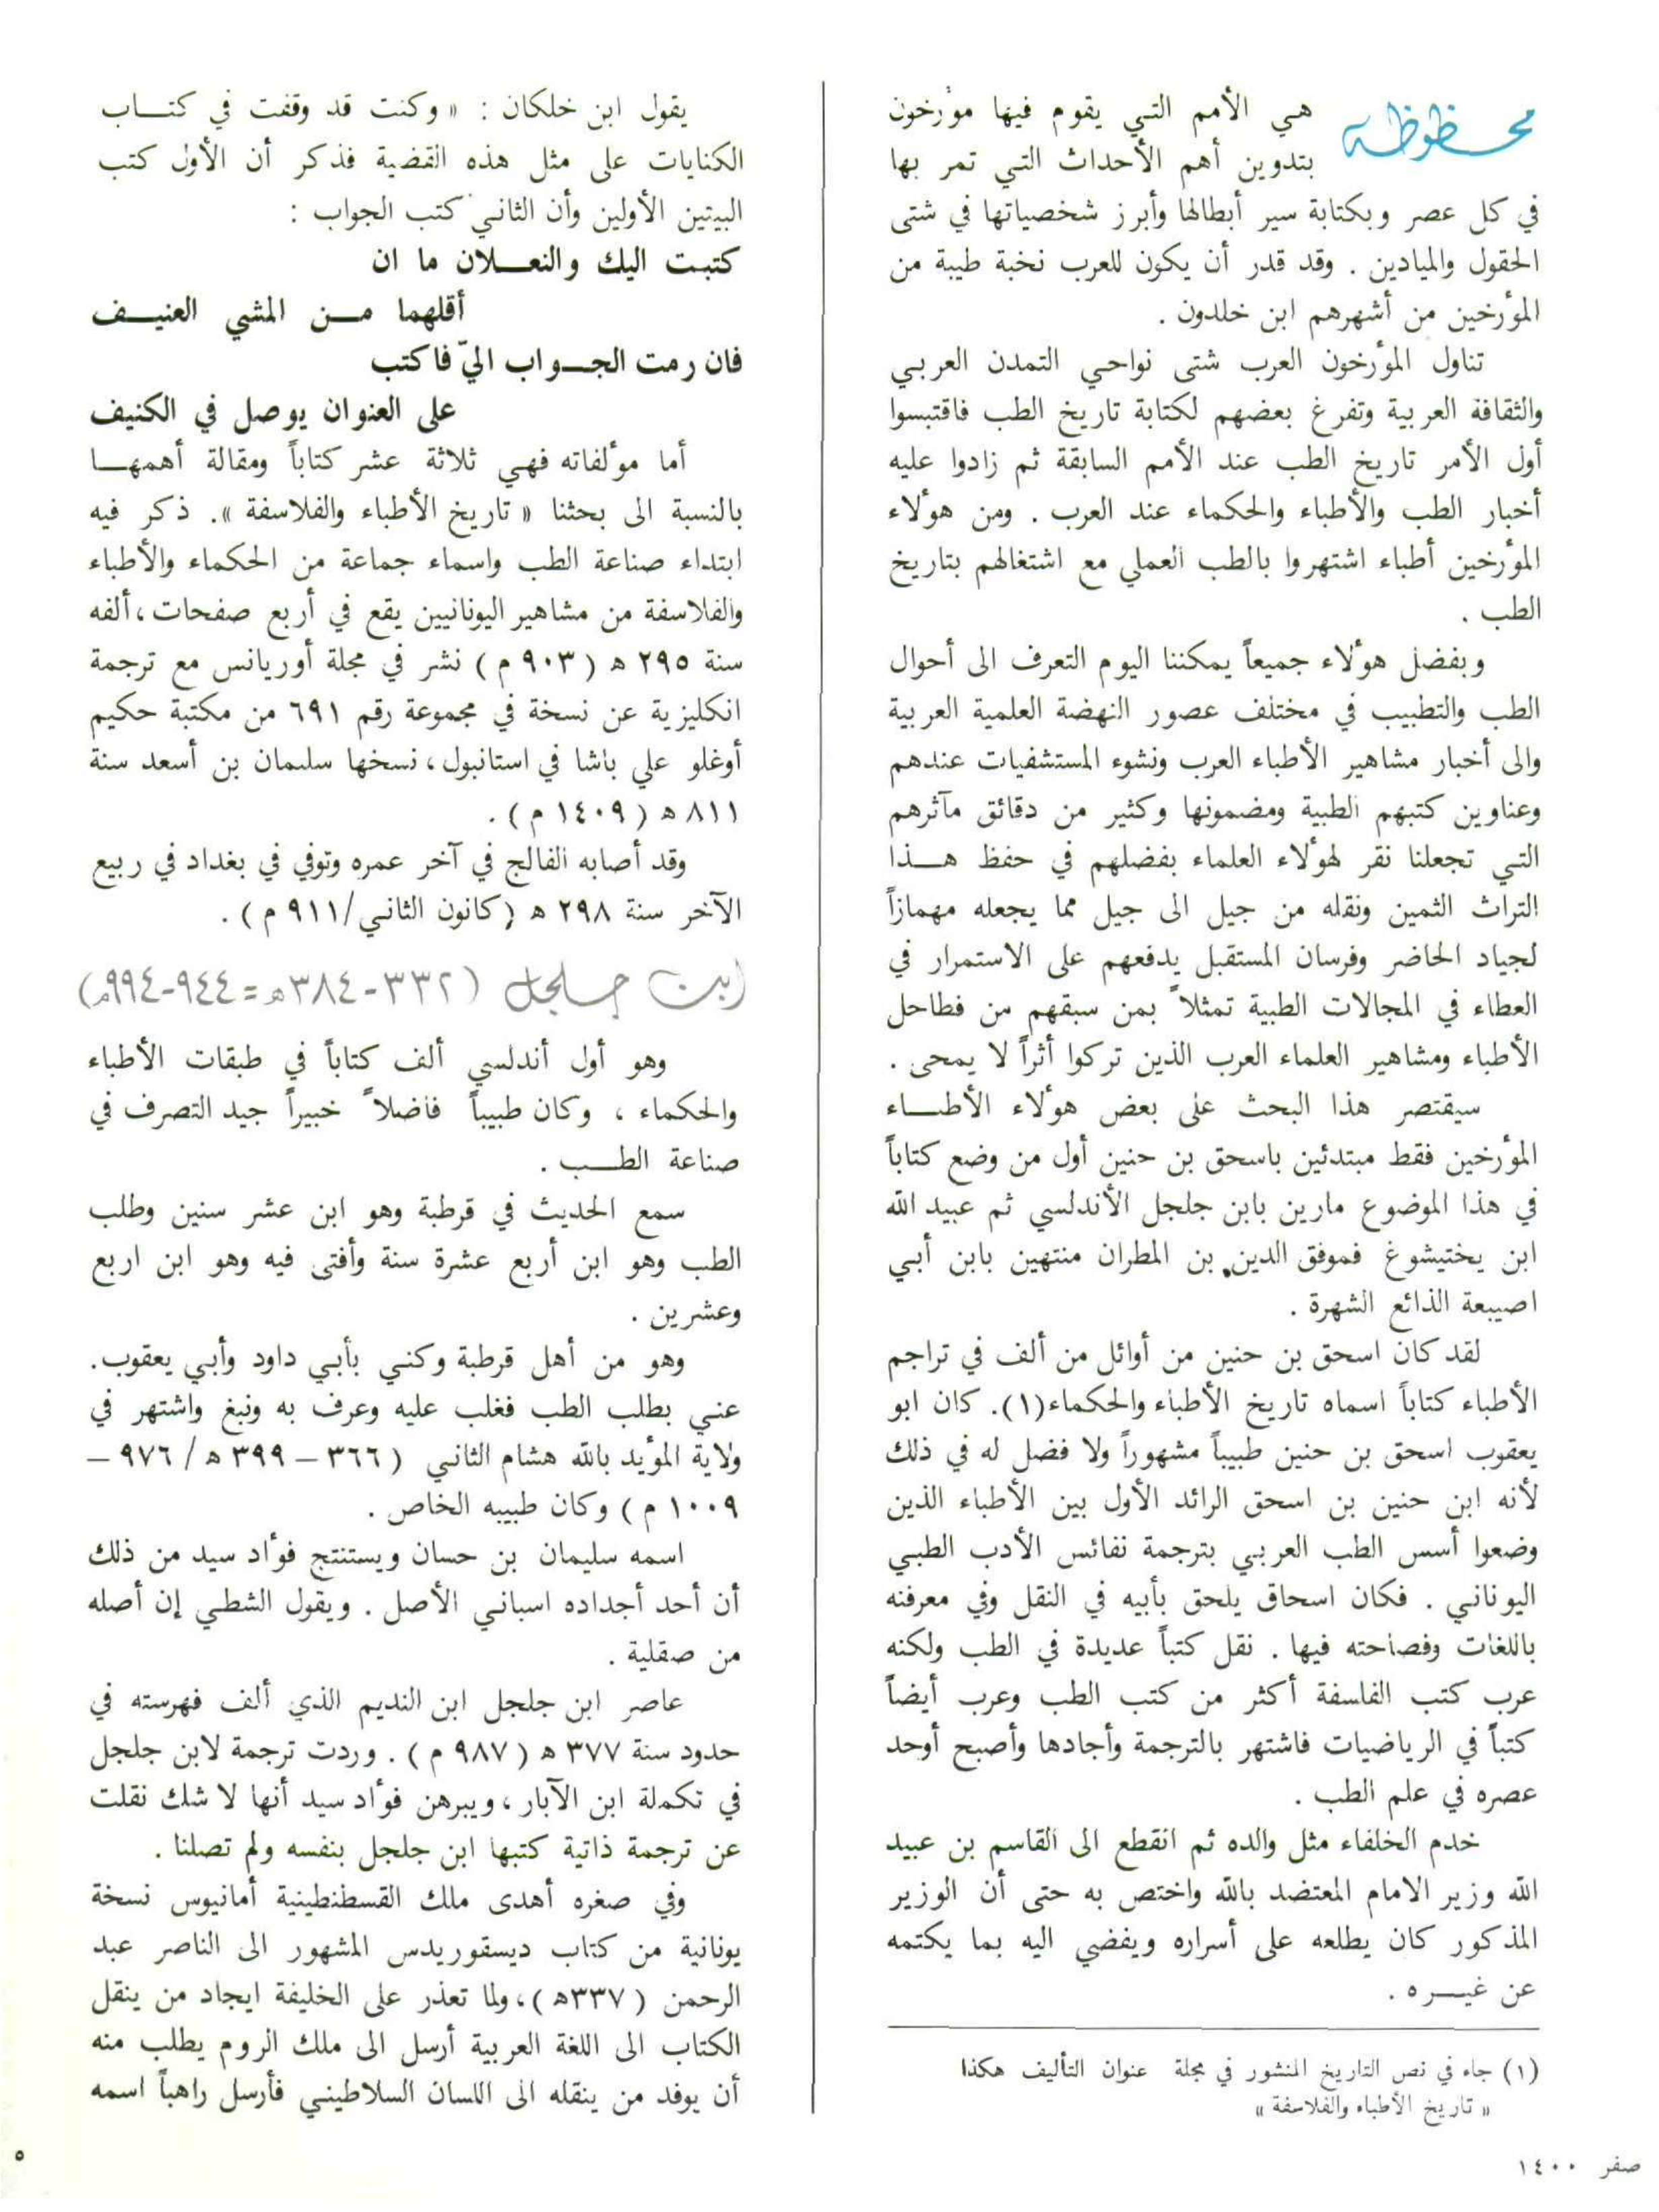 محظوظة هي الأمم التي يقوم فيها مؤرخون
بتدوين أهم الأحداث التي تمر بها
في كل عصر وبكتابة سير أبطالها وأبرز شخصياتها في شتى
الحقول والميادين . وقد قدر أن يكون للعرب نخبة طيبة من
المؤرخين من أشهرهم ابن خلدون .
تناول المؤرخون العرب شتى نواحي التمدن العربي
والثقافة العربية وتفرغ بعضهم لكتابة تاريخ الطب فاقتبسوا
أول الأمر تاريخ الطب عند الأمم السابقة ثم زادوا عليه
أخبار الطب والأطباء والحكماء عند العرب . ومن هؤلاء
المؤرخين أطباء اشتهروا بالطب العملي مع اشتغالهم بتاريخ
الطب .
وبفضل هؤلاء جميعاً يمكننا اليوم التعرف الى أحوال
الطب والتطبيب في مختلف عصور النهضة العلمية العربية
والى أخبار مشاهير الأطباء العرب ونشوء المستشفيات عندهم
وعناوين كتبهم الطبية ومضمونها وكثير من دقائق مآثرهم
التي تجعلنا نقر لهؤلاء العلماء بفضلهم في حفظ هـــذا
التراث الثمين ونقله من جيل الى جيل مما يجعله مهمازاً
لجياد الحاضر وفرسان المستقبل يدفعهم على الاستمرار في
العطاء في المجالات الطبية تمثلاً بمن سبقهم من فطاحل
الأطباء ومشاهير العلماء العرب الذين تركوا أثراً لا يمحى .
سيقتصر هذا البحث على بعض هؤلاء الأطبـــاء
المؤرخين فقط مبتدئين باسحق بن حنين أول من وضع كتاباً
في هذا الموضوع مارين بابن جلجل الأندلسي ثم عبيد الله
ابن يختيشوغ فموفق الدين بن المطران منتهين بابن أبي
اصيبعة الذائع الشهرة .
لقد كان اسحق بن حنين من أوائل من ألف في تراجم
الأطباء كتاباً اسماه تاريخ الأطباء والحكماء(١). كان ابو
يعقوب اسحق بن حنين طبيباً مشهوراً ولا فضل له في ذلك
لأنه ابن حنين بن اسحق الرائد الأول بين الأطباء الذين
وضعوا أسس الطب العربي بترجمة نفائس الأدب الطبي
اليوناني . فكان اسحاق يلحق بأبيه في النقل وفي معرفته
باللغات وفصاحته فيها . نقل كتباً عديدة في الطب ولكنه
عرب كتب الفلسفة أكثر من كتب الطب وعرب أيضاً
كتباً في الرياضيات فاشتهر بالترجمة وأجادها وأصبح أوحد
عصره في علم الطب .
خدم الخلفاء مثل والده ثم انقطع الى القاسم بن عبيد
الله وزير الامام المعتضد بالله واختص به حتى أن الوزير
المذكور كان يطلعه على أسراره ويفضي اليه بما يكتمه
عن غيـــره .
(١) جاء في نص التاريخ المنشور في مجلة عنوان التأليف هكذا
« تاريخ الأطباء والفلاسفة »
يقول ابن خلكان : « وكنت قد وقفت في كتـــاب
الكنايات على مثل هذه القضية فذكر أن الأول كتب
البيتين الأولين وأن الثاني كتب الجواب :
كتبت اليك والنعـــلان ما ان
أقلهما مـــن المشي العنيـــف
فان رمت الجـــواب اليّ فاكتب
على العنوان يوصل في الكنيف
أما مؤلفاته فهي ثلاثة عشر كتاباً ومقالة أهمهـــا
بالنسبة الى بحثنا « تاريخ الأطباء والفلاسفة ». ذكر فيه
ابتداء صناعة الطب واسماء جماعة من الحكماء والأطباء
والفلاسفة من مشاهير اليونانيين يقع في أربع صفحات، ألفه
سنة ٢٩٥ ه (٩٠٣ م) نشر في مجلة أوريانس مع ترجمة
انكليزية عن نسخة في مجموعة رقم ٦٩١ من مكتبة حكيم
أوغلو علي باشا في استانبول، نسخها سليمان بن أسعد سنة
٨١١ ه (١٤٠٩ م) .
وقد أصابه الفالج في آخر عمره وتوفي في بغداد في ربيع
الآخر سنة ٢٩٨ ه (كانون الثاني/٩١١ م) .
ابن جلجل (٣٣٢-٣٨٤ه=٩٤٤-٩٩٤م)
وهو أول أندلسي ألف كتاباً في طبقات الأطباء
والحكماء ، وكان طبيباً فاضلاً خبيراً جيد التصرف في
صناعة الطـــب .
سمع الحديث في قرطبة وهو ابن عشر سنين وطلب
الطب وهو ابن أربع عشرة سنة وأفتى فيه وهو ابن اربع
وعشرين .
وهو من أهل قرطبة وكني بأبي داود وأبي يعقوب.
عني بطلب الطب فغلب عليه وعرف به ونبغ واشتهر في
ولاية المؤيد بالله هشام الثاني (٣٦٦ – ٣٩٩ ه / ٩٧٦ –
١٠٠٩ م) وكان طبيبه الخاص .
اسمه سليمان بن حسان ويستنتج فؤاد سيد من ذلك
أن أحد أجداده اسباني الأصل . ويقول الشطي إن أصله
من صقلية .
عاصر ابن جلجل ابن النديم الذي ألف فهرسته في
حدود سنة ٣٧٧ ه (٩٨٧ م) . وردت ترجمة لابن جلجل
في تكملة ابن الآبار، ويبرهن فؤاد سيد أنها لا شك نقلت
عن ترجمة ذاتية كتبها ابن جلجل بنفسه ولم تصلنا .
وفي صغره أهدى ملك القسطنطينية أمانيوس نسخة
يونانية من كتاب ديسقوريدس المشهور الى الناصر عبد
الرحمن (٣٣٧ه)، ولما تعذر على الخليفة ايجاد من ينقل
الكتاب الى اللغة العربية أرسل الى ملك الروم يطلب منه
أن يوفد من ينقله الى اللسان السلاطيني فأرسل راهباً اسمه
صفر ١٤٠٠
٥